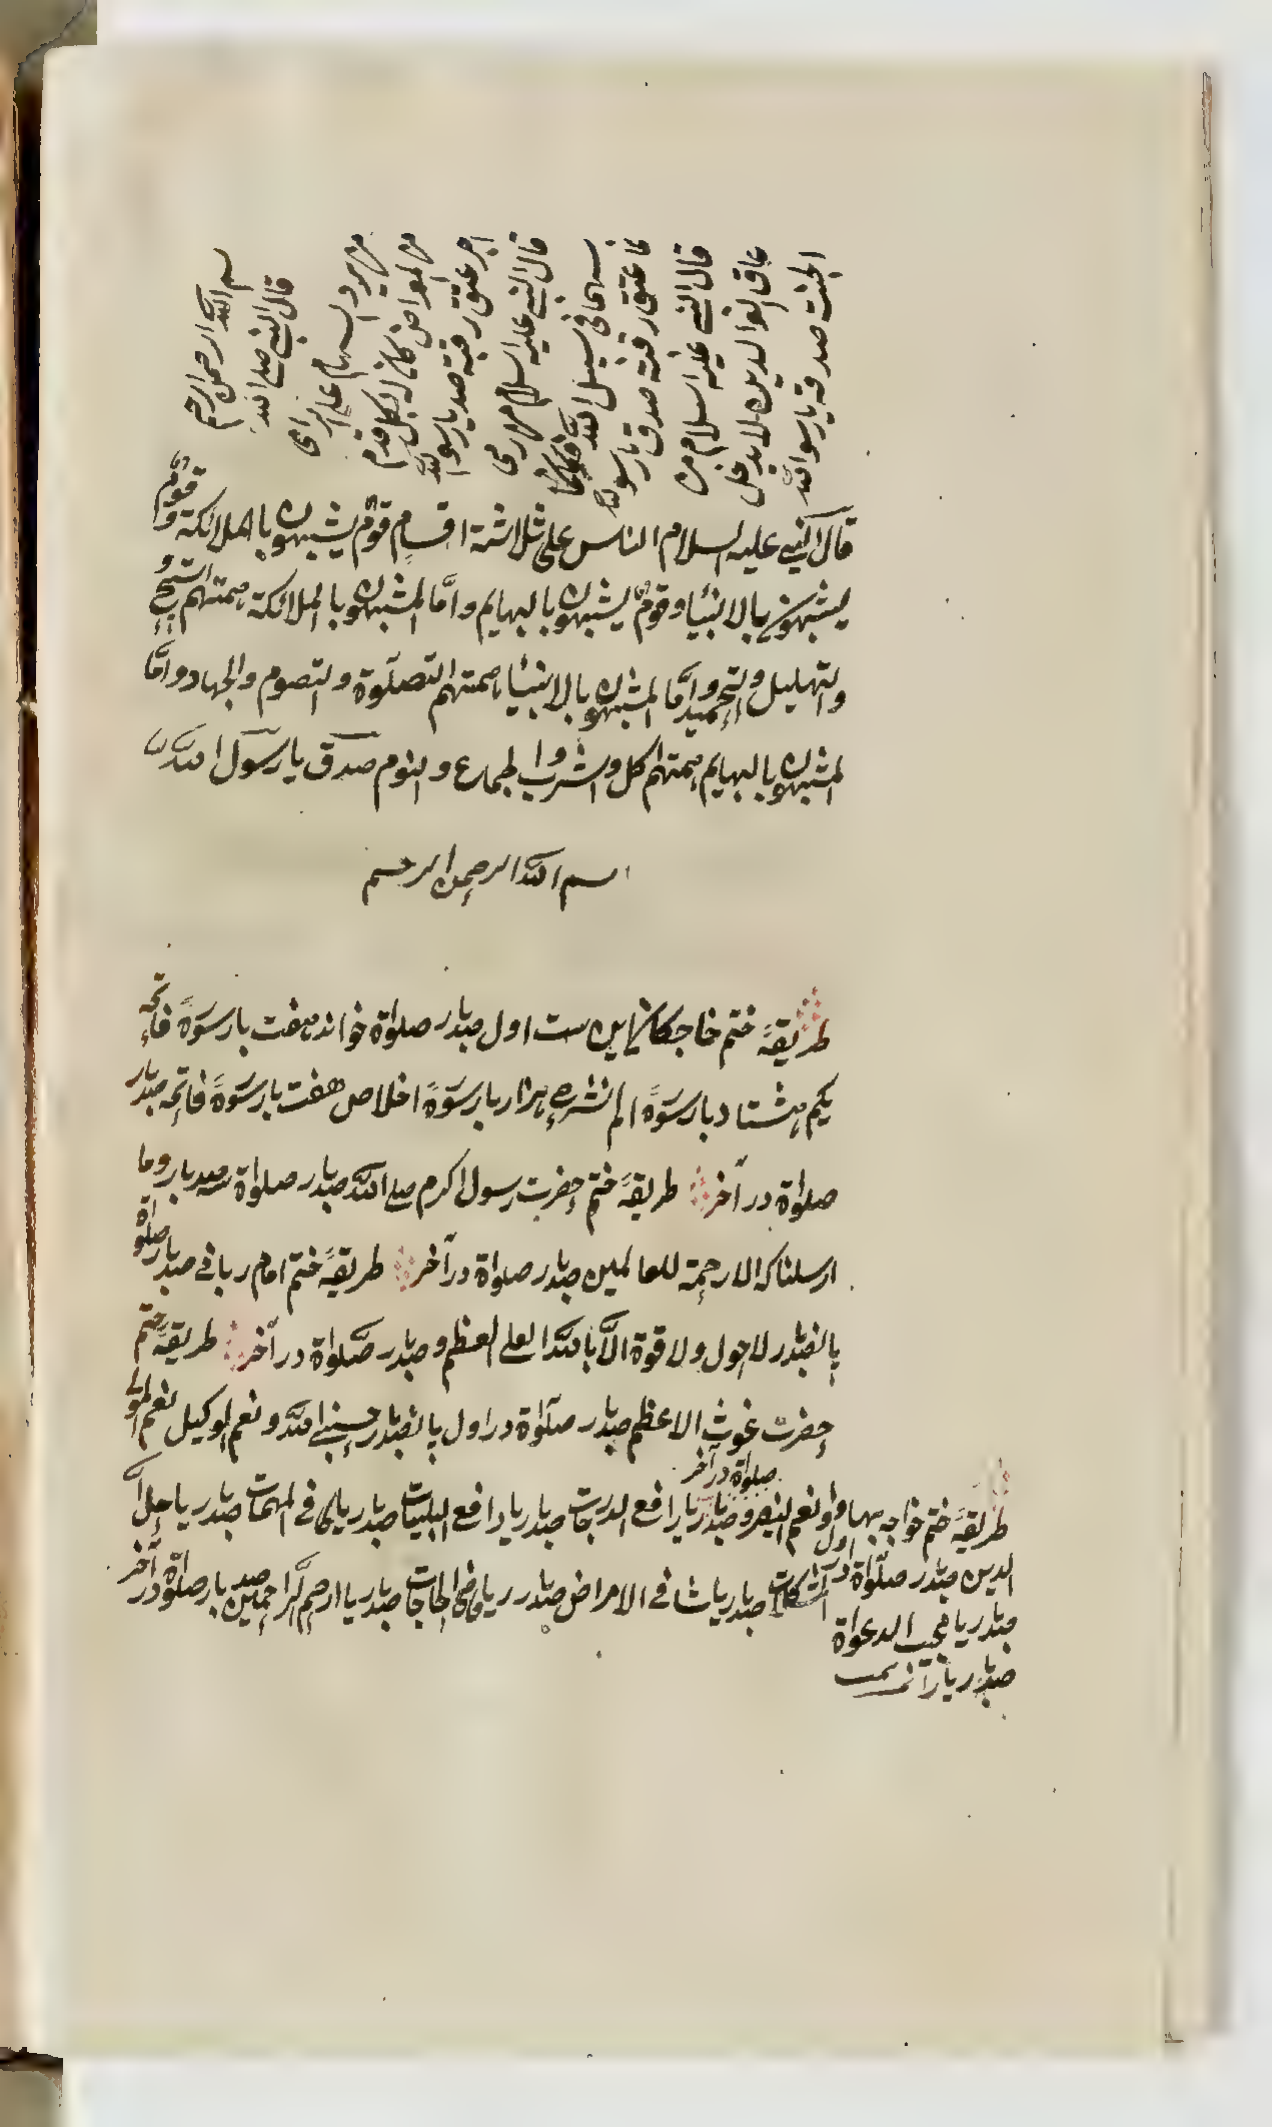 بسم الله الرحمن الرحيم
قال النبي صلى الله
من يرد السهام على الرامى
من المواضع كان له بكل قدم
اجر عتق رقبة صدق يا رسول الله
قال النبي عليه السلام من رمى
سهما فى سبيل الله فكانما
اعتق رقبة صدق يا رسول الله
قال النبي عليه السلام من
عاق الوالدين لا يدخل
الجنت صدق يا رسول الله
قال النبي عليه السلام الناس على ثلاثة اقسام قوم يشبهون بالملائكة وقوم
يشبهون بالانبيا وقوم يشبهون بالبهايم واما المشبهون بالملائكة همتهم التسبيح
والتهليل والتحميد واما المشبهون بالانبيا همتهم التصلوة والتصوم والجهاد واما
المشبهون بالبهايم همتهم اكل وشرب والجماع والنوم صدق يا رسول الله
بسم الله الرحمن الرحيم
طريقۀ ختم خاجكان اين ست اول صدبار صلواة خواند هفت بار سورۀ فاتحه
يكم هشتاد بار سورۀ الم نشرح هزار بار سورۀ اخلاص هفت بار سورۀ فاتحه صدبار
صلواة در آخر طريقۀ ختم حضرت رسول اكرم صلى الله صدبار صلواة سه صد بار وما
ارسلناك الا رحمة للعالمين صدبار صلواة در آخر طريقۀ ختم امام ربانى صدبار صلواة
پانصدبار لا حول ولا قوة الا بالله العلى العظيم وصدبار صلواة در آخر طريقۀ ختم
حضرت غوث الاعظم صدبار صلواة در اول پانصدبار حسبنا الله ونعم الوكيل نعم المولى
ونعم النصير وصدبار صلواة در آخر
طريقۀ ختم خواجه بهاو
الدين صدبار صلواة در اول
صدبار يا مجيب الدعواة
صدبار يا رافع الدرجات صدبار يا دافع البليات صدبار يا كافى المهمات صدبار يا حل
المشكلات صدبار يا شافى الامراض صدبار يا قاضى الحاجات صدبار يا ارحم الراحمين صدبار صلواة در آخر